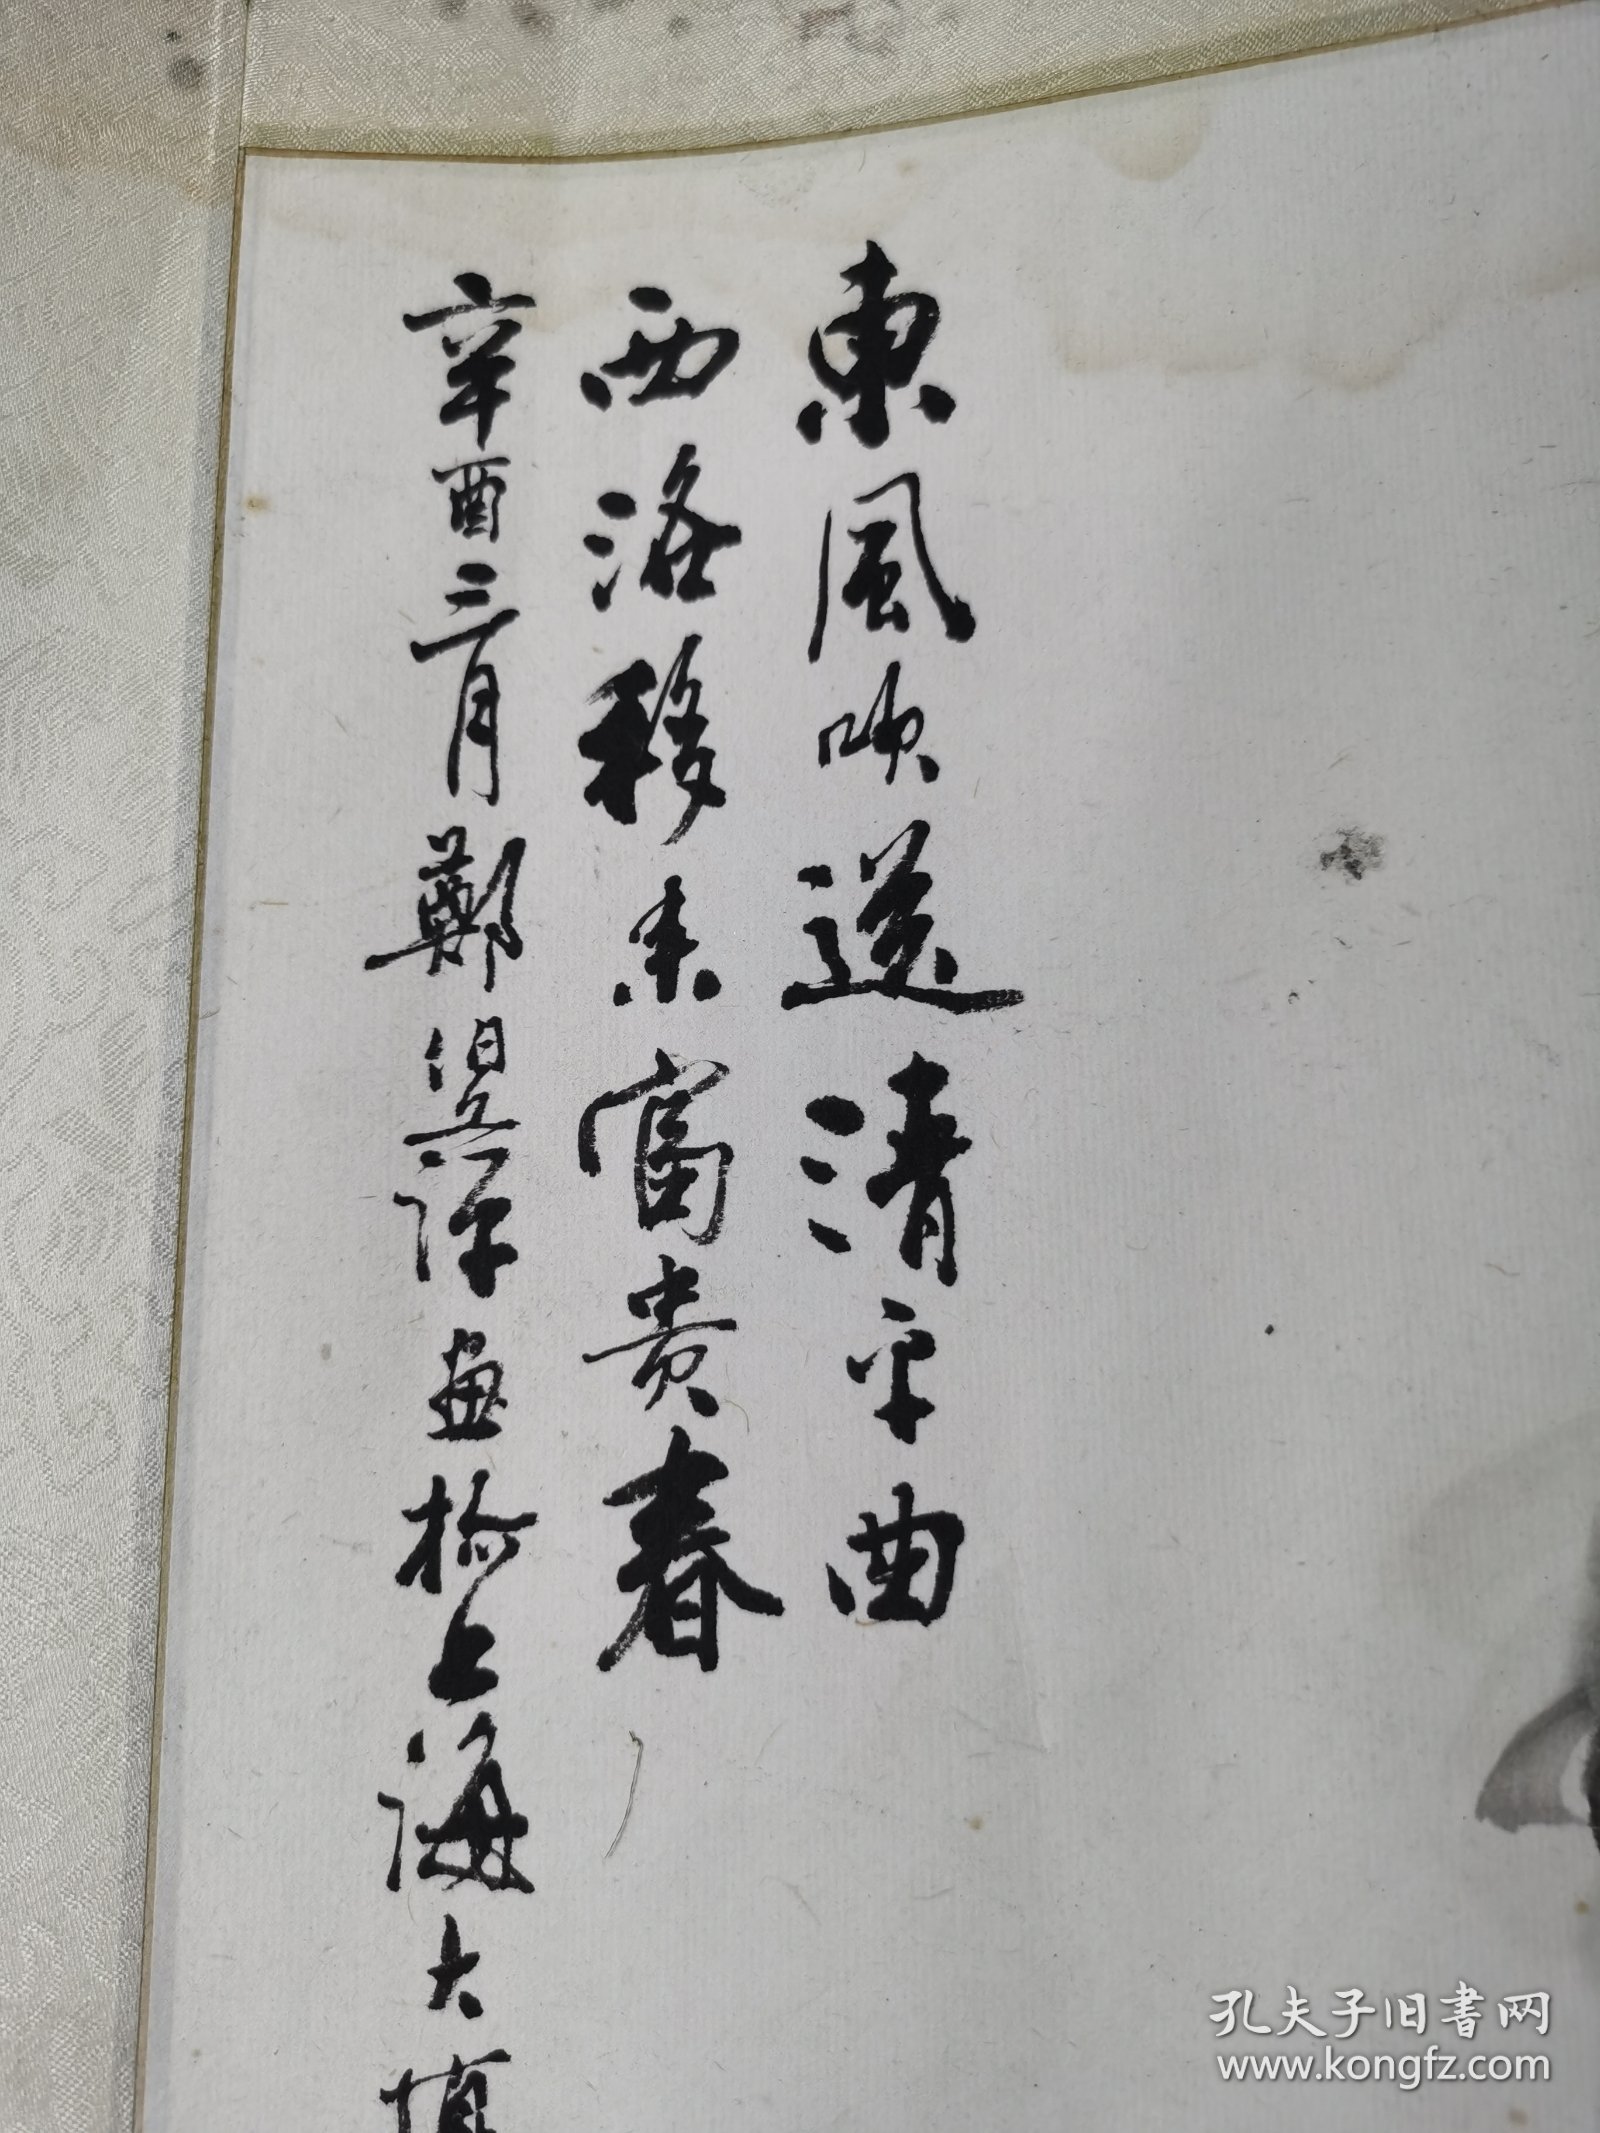 東風吹送清平曲
西洛移来富貴春
辛酉三月鄭伯
畫於上海大
孔夫子旧书网
www.kongfz.com